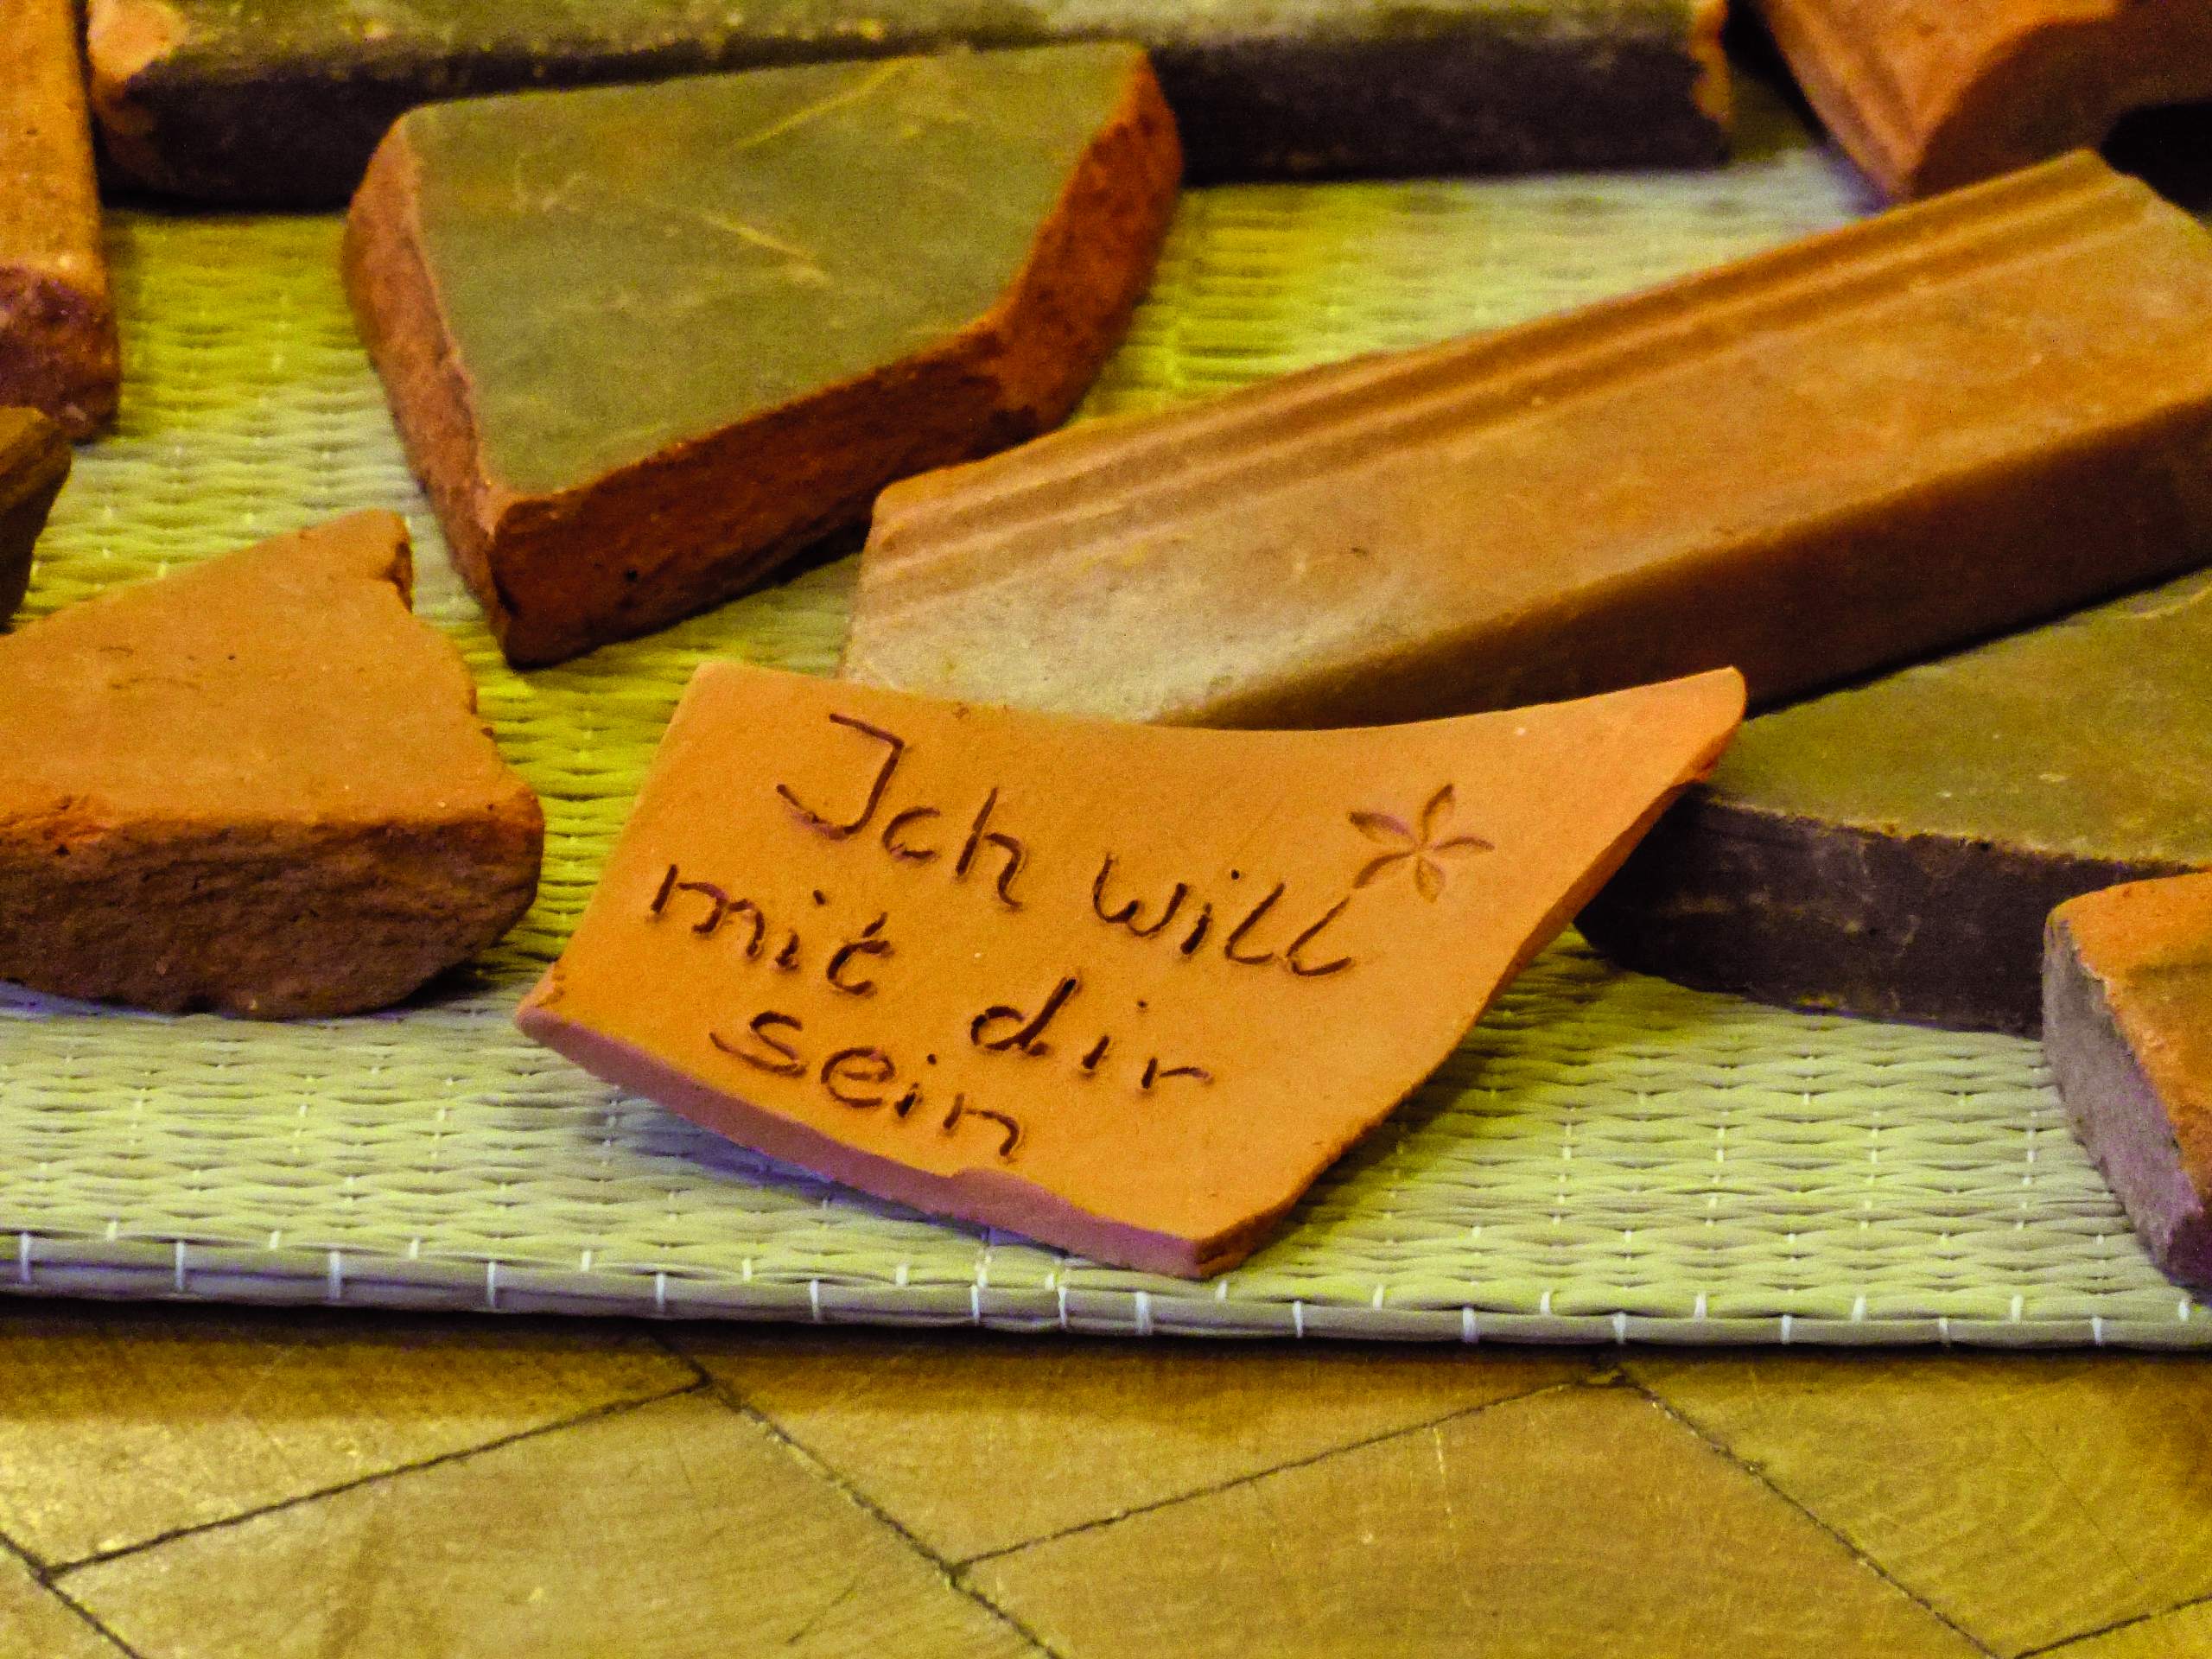 Ich will
mit dir
sein